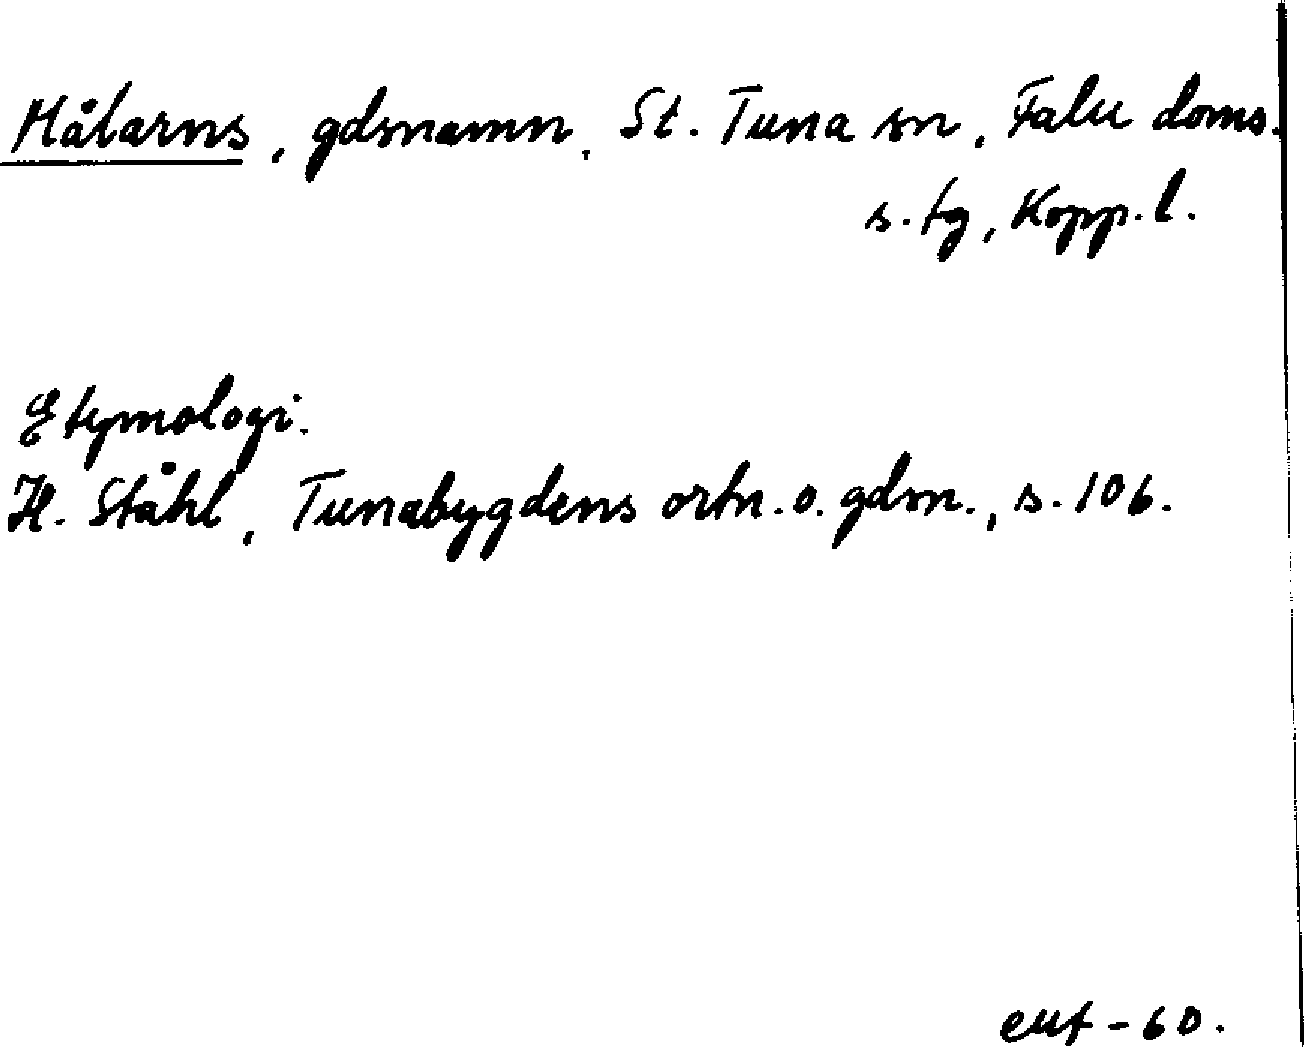 Målarns, gdsnamn, St. Tuna sn, Falu doms.
s. tg, Kopp. l.
Etymologi.
H. Ståhl, Tunabygdens ortn. o. gdsn., s. 106.
-60.